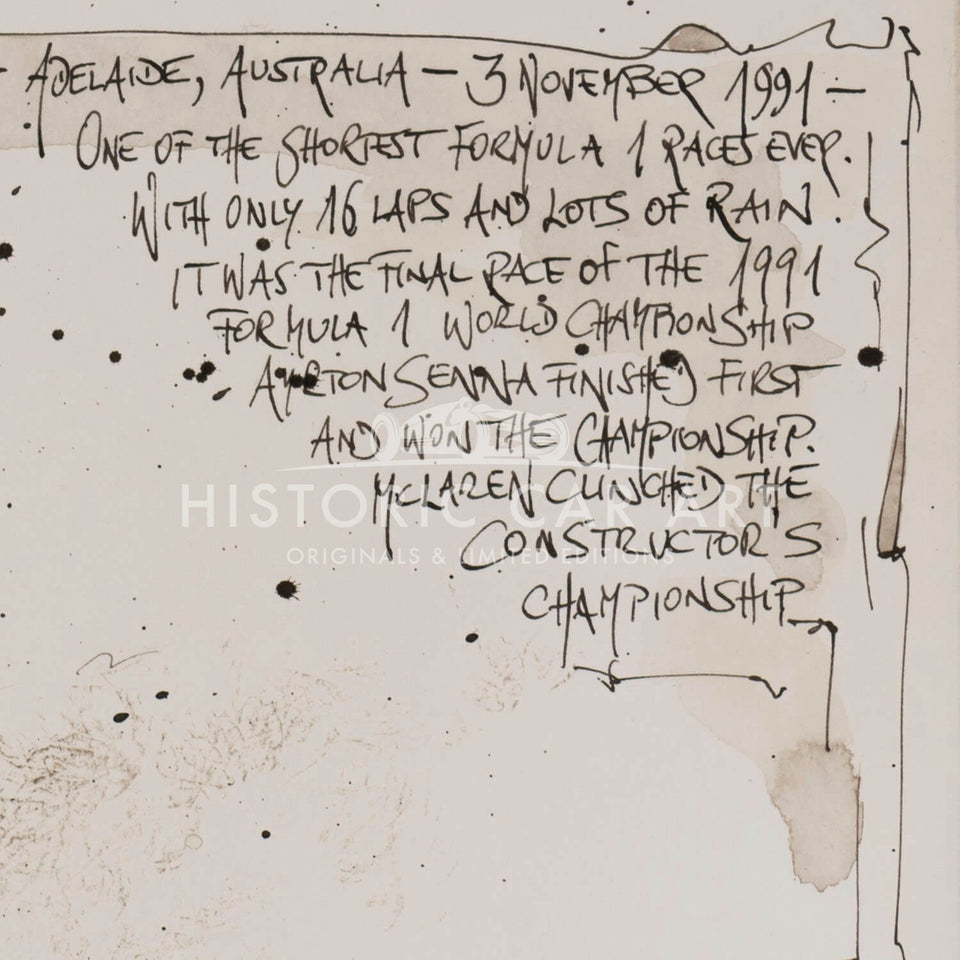 ADELAIDE, AUSTRALIA – 3 NOVEMBER 1991 –
ONE OF THE SHORTEST FORMULA 1 RACES EVER.
WITH ONLY 16 LAPS AND LOTS OF RAIN.
IT WAS THE FINAL RACE OF THE 1991
FORMULA 1 WORLD CHAMPIONSHIP
AYRTON SENNA FINISHED FIRST
AND WON THE CHAMPIONSHIP.
MCLAREN CLINCHED THE
HISTORIC CAR ART
CONSTRUCTOR'S
ORIGINALS & LIMITED EDITIONS
CHAMPIONSHIP